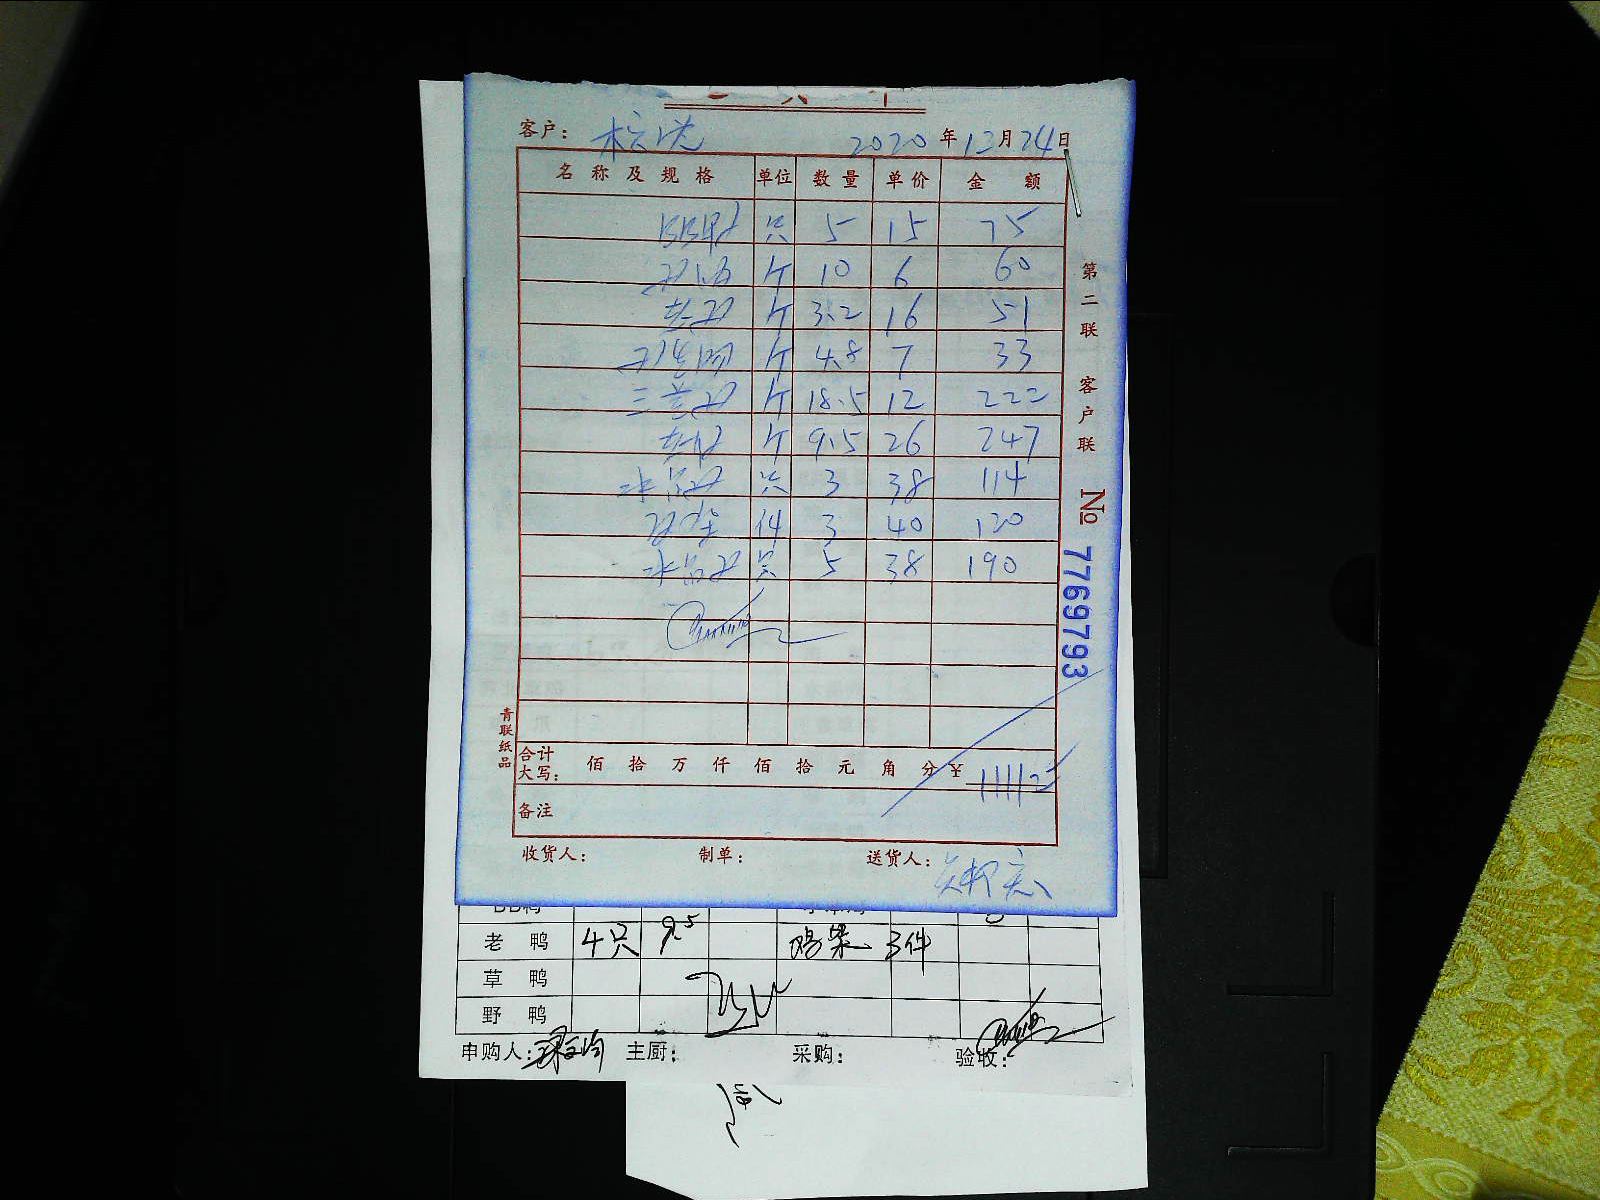 客户:
2020年12月24日
名称及规格 单位 数量 单价 金额
BB鸭 只 5 15 75
斤 10 6 60
斤 3.2 16 51
斤 4.8 7 33
三黄鸡 斤 18.5 12 222
老鸭 斤 9.5 26 247
水晶鸡 只 3 38 114
件 3 40 120
水晶鸡 只 5 38 190
合计大写: 佰 拾 万 仟 佰 拾 元 角 分 ¥ 1112
备注
收货人: 制单: 送货人:
第二联 客户联 № 7769793
青联纸品
BB鸭
老鸭 4只 9.5 3件
草鸭
野鸭
申购人: 主厨: 采购: 验收: